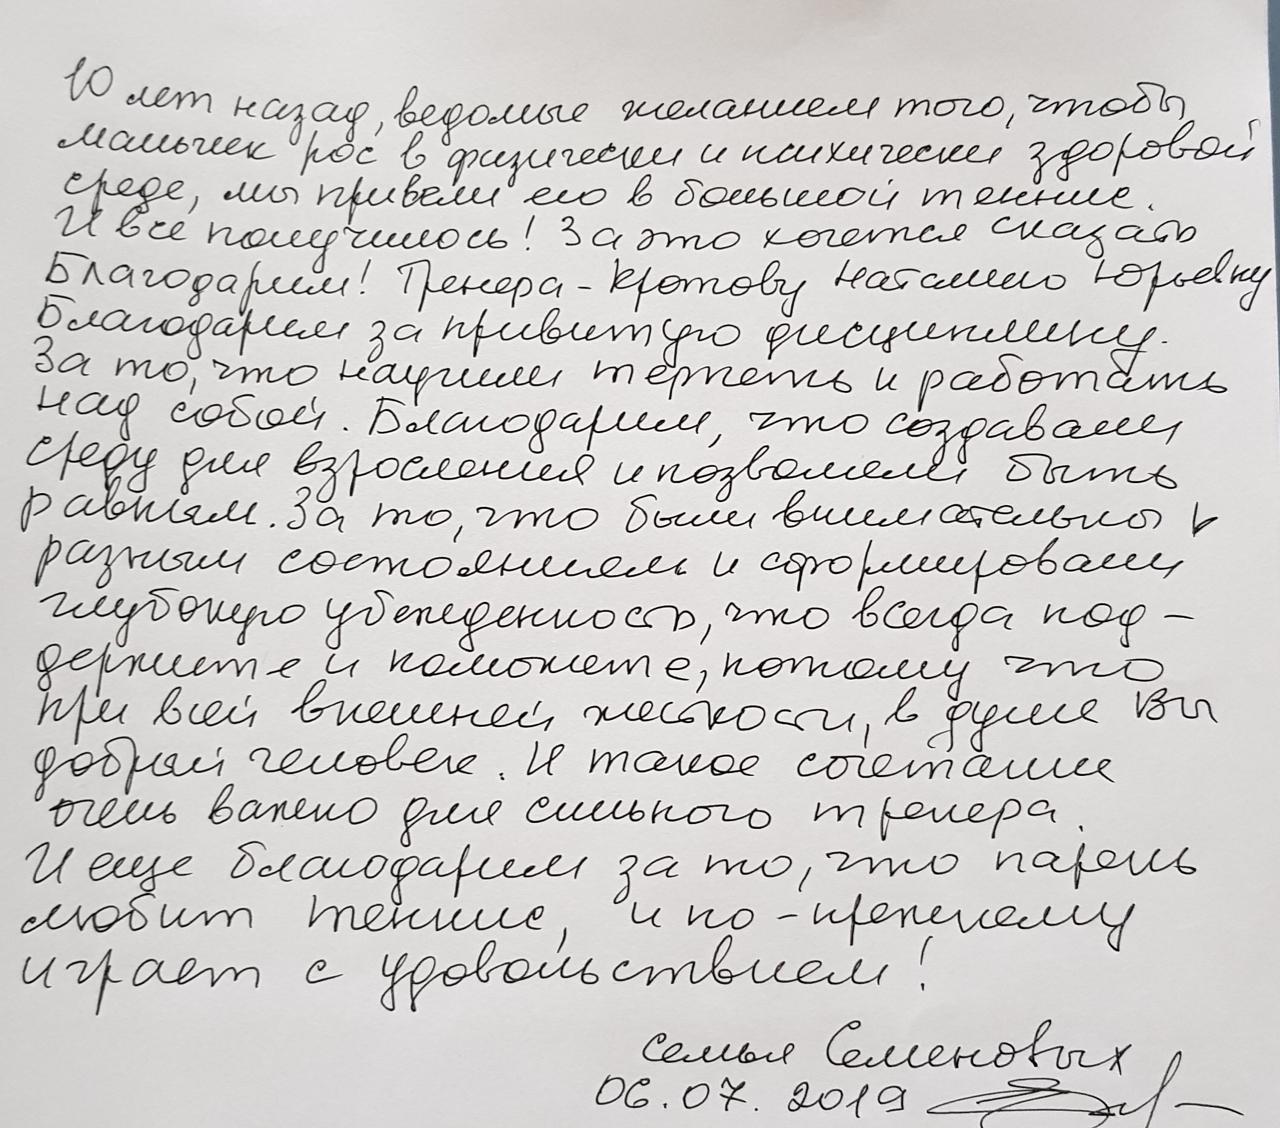 10 лет назад, ведомые желанием того, чтобы
мальчик рос в физически и психически здоровой
среде, мы привели его в большой теннис.
И все получилось! За это хочется сказать
Благодарим! Тренера - Кротову Наталию Юрьевну
Благодарим за привитую дисциплину.
За то, что научили терпеть и работать
над собой. Благодарим, что создавали
среду для взросления и позволяли быть
равным. За то, что были внимательны к
разным состояниям и сформировали
глубокую убежденность, что всегда под-
держите и поможете, потому что
при всей внешней жесткости, в душе Вы
добрый человек. И такое сочетание
очень важно для сильного тренера.
И еще благодарим за то, что парень
любит теннис, и по-прежнему
играет с удовольствием!
семья Семеновых
06.07.2019